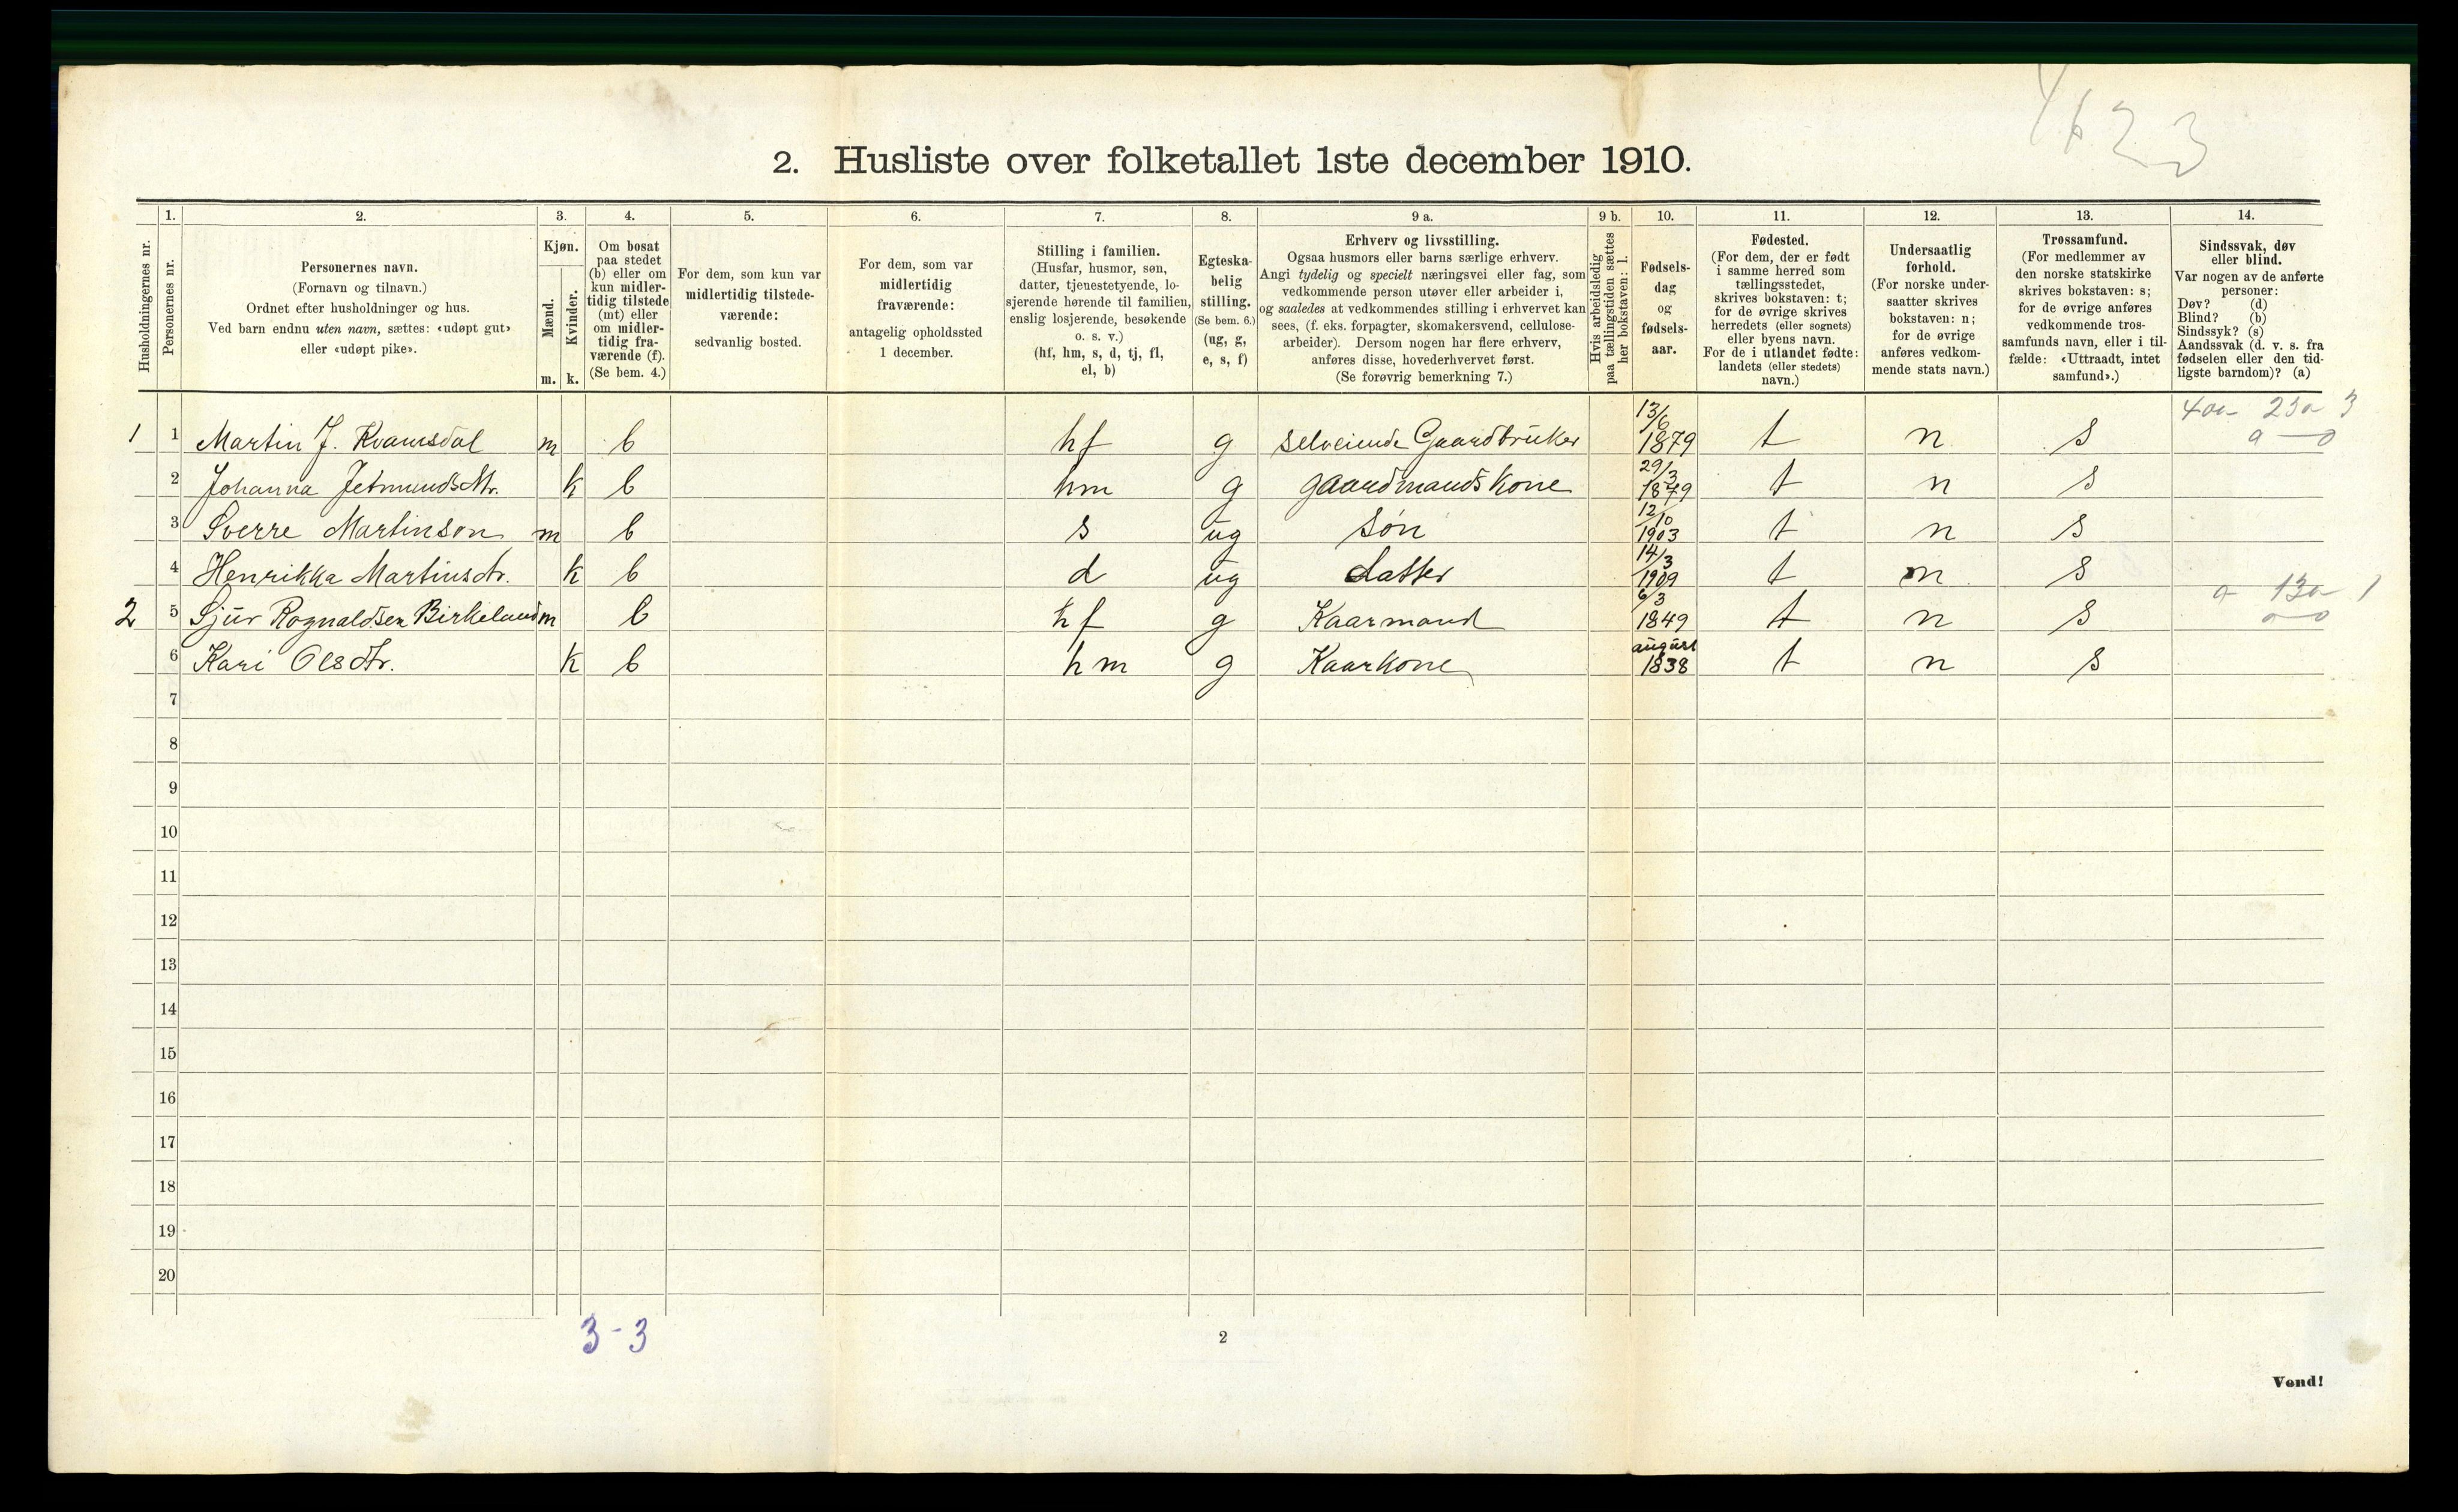 2. Husliste over folketallet 1ste december 1910.
1. 2. 3. 4. 5. 6. 7. 8. 9 a. 9 b. 10. 11. 12. 13. 14.
Husholdningernes nr.
Personernes nr.
Personernes navn.
(Fornavn og tilnavn.)
Ordnet efter husholdninger og hus.
Ved barn endnu uten navn, sættes: «udøpt gut»
eller «udøpt pike».
Kjøn.
Mænd.
Kvinder.
m. k.
Om bosat
paa stedet
(b) eller om
kun midler-
tidig tilstede
(mt) eller
om midler-
tidig fra-
værende (f).
(Se bem. 4.)
For dem, som kun var
midlertidig tilstede-
værende:
sedvanlig bosted.
For dem, som var
midlertidig
fraværende:
antagelig opholdssted
1 december.
Stilling i familien.
(Husfar, husmor, søn,
datter, tjenestetyende, lo-
sjerende hørende til familien,
enslig losjerende, besøkende
o. s. v.)
(hf, hm, s, d, tj, fl,
el, b)
Egteska-
belig
stilling.
(Se bem. 6.)
(ug, g,
e, s, f)
Erhverv og livsstilling.
Ogsaa husmors eller barns særlige erhverv.
Angi tydelig og specielt næringsvei eller fag, som
vedkommende person utøver eller arbeider i,
og saaledes at vedkommendes stilling i erhvervet kan
sees, (f. eks. forpagter, skomakersvend, cellulose-
arbeider). Dersom nogen har flere erhverv,
anføres disse, hovederhvervet først.
(Se forøvrig bemerkning 7.)
Hvis arbeidsledig
paa tællingstiden sættes
her bokstaven: l.
Fødsels-
dag
og
fødsels-
aar.
Fødested.
(For dem, der er født
i samme herred som
tællingsstedet,
skrives bokstaven: t;
for de øvrige skrives
herredets (eller sognets)
eller byens navn.
For de i utlandet fødte:
landets (eller stedets)
navn.)
Undersaatlig
forhold.
(For norske under-
saatter skrives
bokstaven: n;
for de øvrige
anføres vedkom-
mende stats navn.)
Trossamfund.
(For medlemmer av
den norske statskirke
skrives bokstaven: s;
for de øvrige anføres
vedkommende tros-
samfunds navn, eller i til-
fælde: «Uttraadt, intet
samfund».)
Sindssvak, døv
eller blind.
Var nogen av de anførte
personer:
Døv? (d)
Blind? (b)
Sindssyk? (s)
Aandssvak (d. v. s. fra
fødselen eller den tid-
ligste barndom)? (a)
1 1 Martin J. Kvamsdal m b hf g selveiende Gaardbruker 13/6 1879 t n s
2 Johanna Jetmundsdtr. k b hm g gaardmands Kone 29/3 1879 t n s
3 Sverre Martinson m b s ug søn 12/10 1903 t n s
4 Henrikka Martinsdtr. k b d ug datter 14/3 1909 t n s
2 5 Sjur Rognaldsen Birkeland m b hf g Kaarmand 6/3 1849 t n s
6 Kari Olsdtr. k b hm g Kaarkone august 1838 t n s
7
8
9
10
11
12
13
14
15
16
17
18
19
20
3-3
2
Vend!